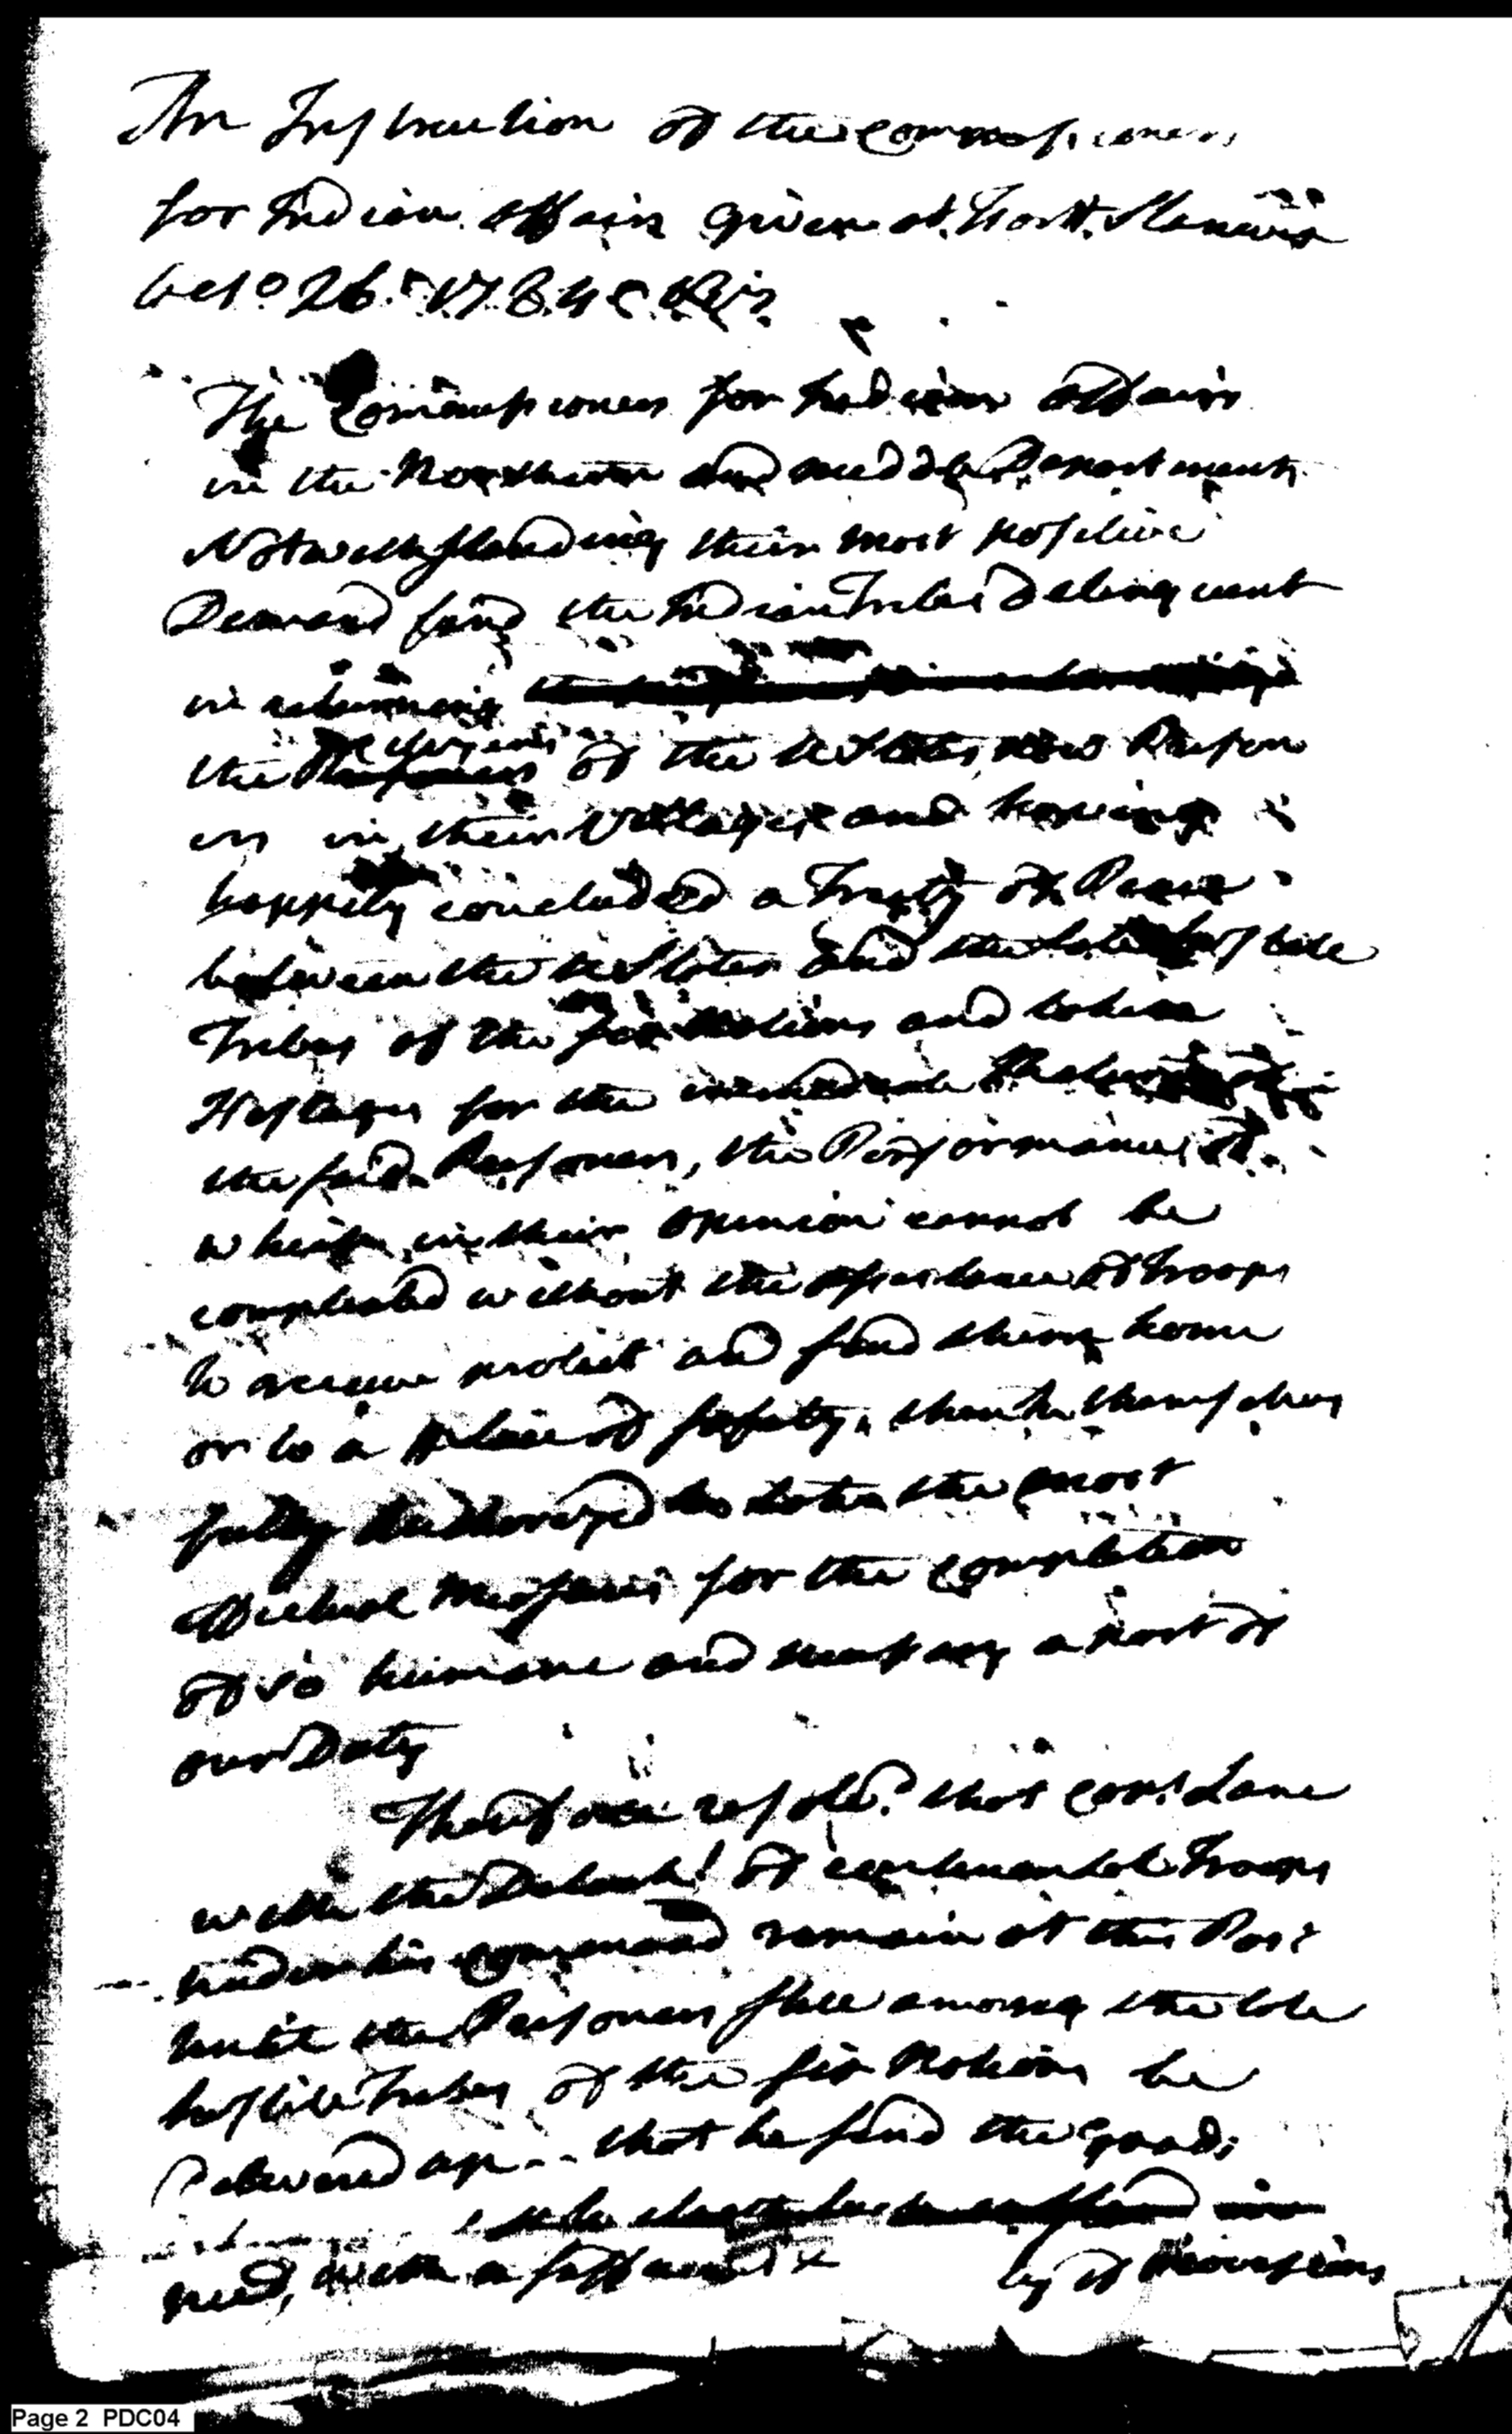 An Instruction of the Commissioners
for Indian Affairs given at Fort Stanwix
Octo. 26. 1784
The Commissioners for Indian affairs
in the Northern and middle Department
Notwithstanding their most positive
Demand find the Indian Tribes delinquent
in returning
the Citizens of the U States, now Prison
ers in their Villages and having
happily concluded a Treaty of Peace
between the U States and the late hostile
Tribes of the six Nations and taken
Hostages for the immediate
the said Prisoners, the Performance of
which in their opinion cannot be
completed without the assistance of Troops
to receive protect and send them home
or to a place of safety, think themselves
fully Authorized to take the most
effectual Measures for the completion
of so humane and necessary a part of
our Duty
Therefore resolvd. that Capt. Lane
with the Detacht. of continental Troops
under his command remain at this Post
until the Prisoners still among the late
hostile Tribes of the six Nations be
delivered up -- that he send the goods
need, with a by of Provisions
Page 2 PDC04